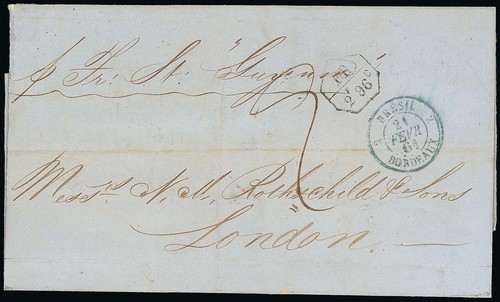 p Fr: St: "Guyenne"
FR
2f 96c
2 BRÉSIL 2
21
FÉVR
61
BORDEAUX
Messrs N. M. Rothschild & Sons
London.